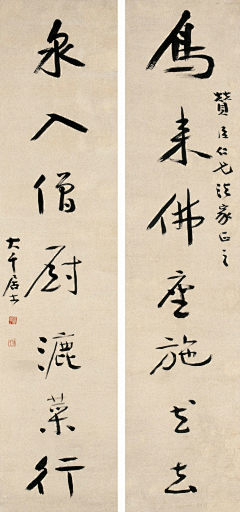 鳥来佛座施花去
贊臣仁兄法家正之
泉入僧廚漉菜行
大千居士